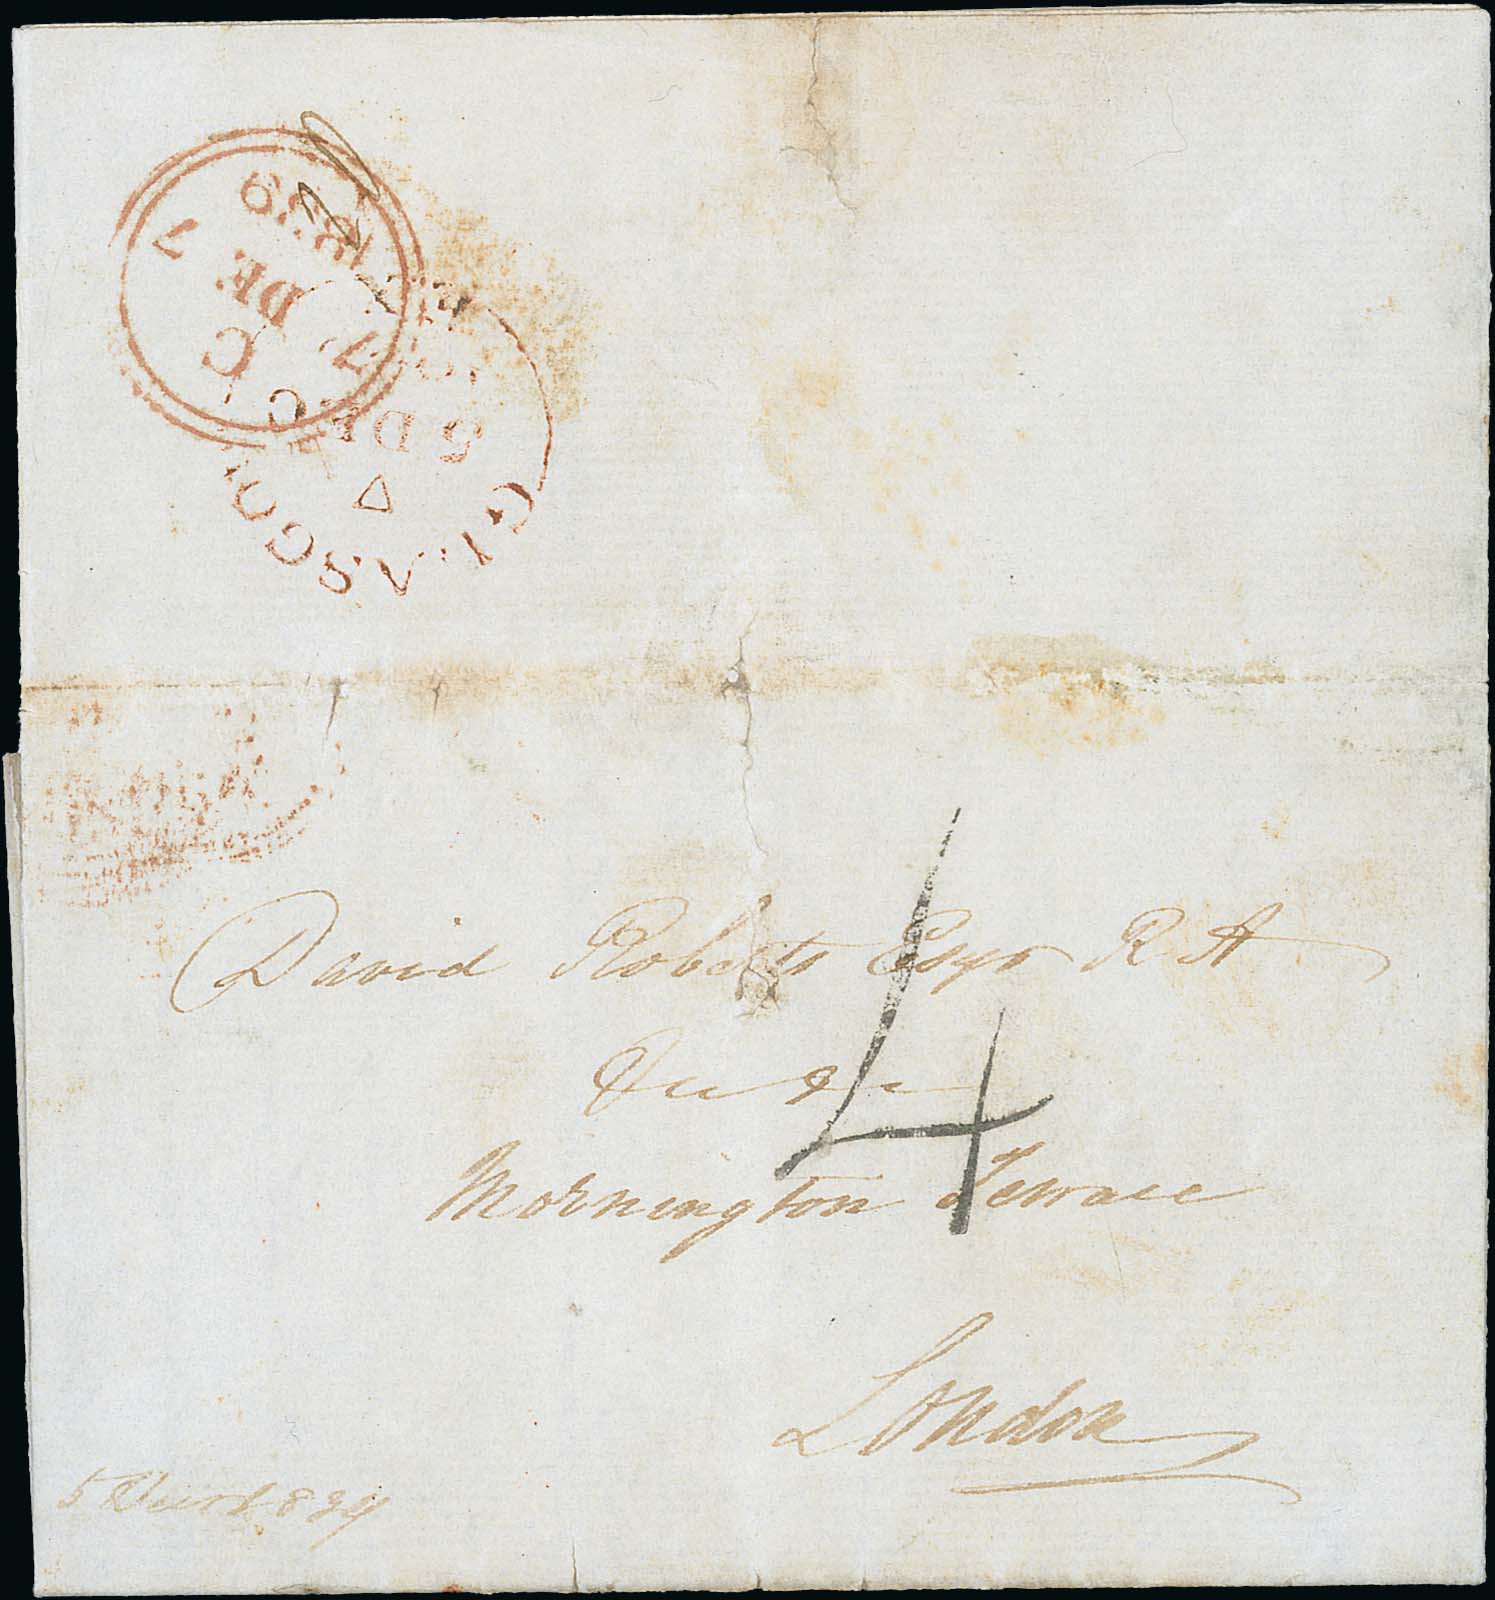 1839
7 DE 7
C C
GLASGOW
5 DEC
David Roberts Esqr R A
4
Mornington Terrace
London
5 1839